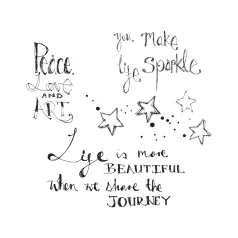 Peace,
Love
AND
ART
You Make
life Sparkle
Life is more
BEAUTIFUL
When we share the
JOURNEY